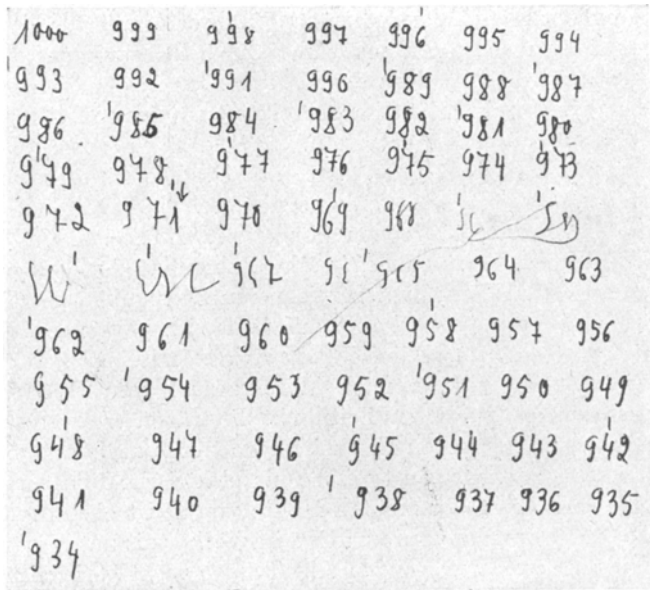 1000 999 998 997 996 995 994
993 992 991 990 989 988 987
986 985 984 983 982 981 980
979 978 977 976 975 974 973
972 971 970 969 968
967 965 964 963
962 961 960 959 958 957 956
955 954 953 952 951 950 949
948 947 946 945 944 943 942
941 940 939 938 937 936 935
934